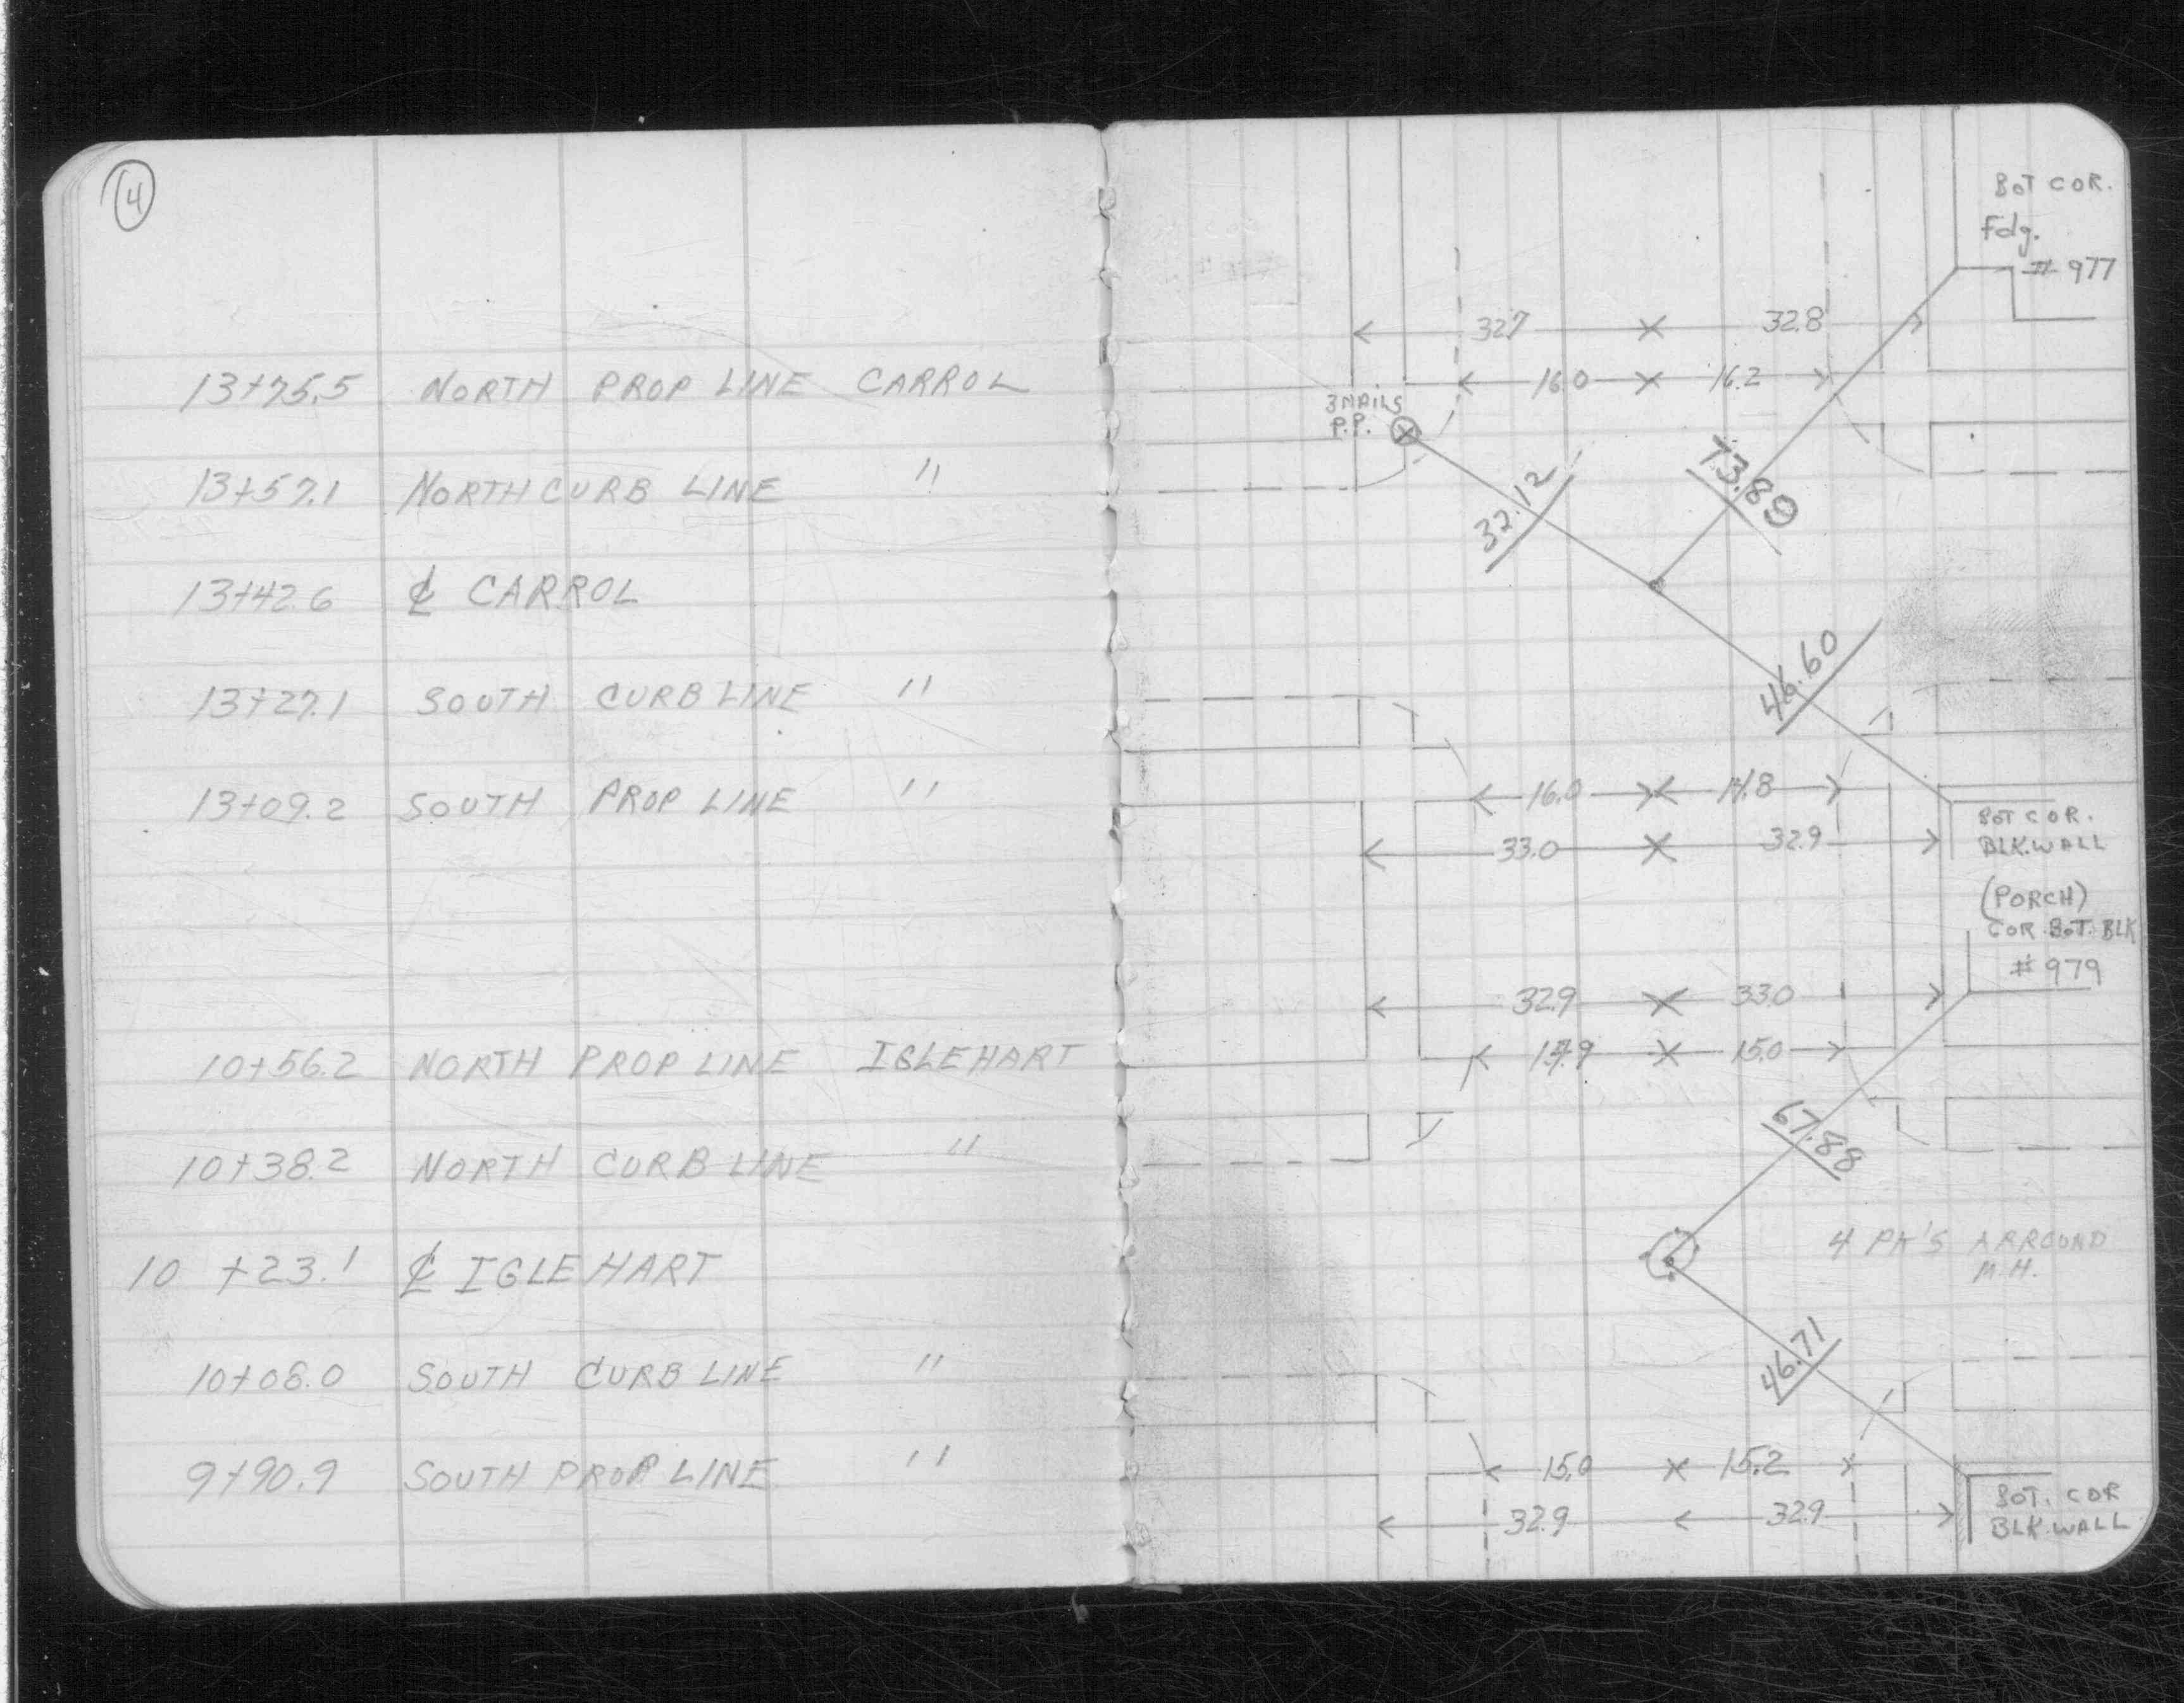 4
13+75.5 NORTH PROP LINE CARROL
13+57.1 NORTH CURB LINE "
13+42.6 ℄ CARROL
13+27.1 SOUTH CURB LINE "
13+09.2 SOUTH PROP LINE "
10+56.2 NORTH PROP LINE IGLEHART
10+38.2 NORTH CURB LINE "
10 +23.1 ℄ IGLEHART
10+08.0 SOUTH CURB LINE "
9+90.9 SOUTH PROP LINE "
BOT COR.
Fdg.
# 977
32.7 32.8
16.0 16.2
3 NAILS
P.P.
32.12
73.89
46.60
16.0
33.0 32.9
BOT COR.
BLK.WALL
(PORCH)
COR BOT. BLK
# 979
32.9 33.0
15.0
67.88
4 PK'S ARROUND
M.H.
46.71
15.0 15.2
32.9 32.9
BOT. COR
BLK.WALL